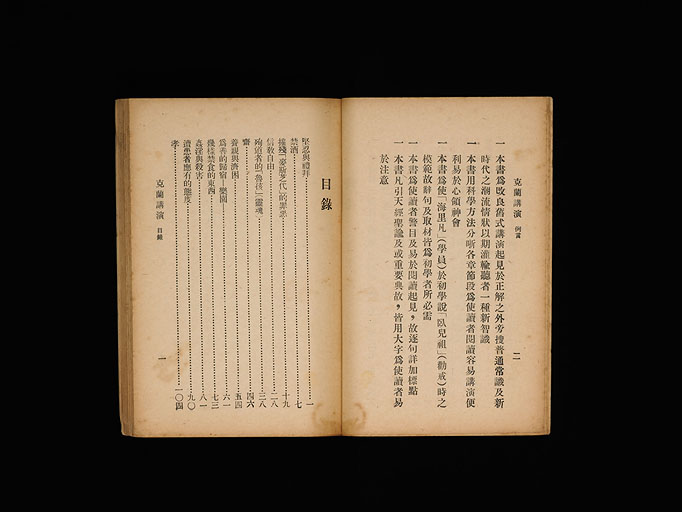 克蘭講演 例言 二
一 本書爲改良舊式講演起見於正解之外旁搜普通常識及新
時代之潮流情狀以期灌輸聽者一種新智識
一 本書用科學方法分晰各章節段爲使讀者閱讀容易講演便
利易於心領神會
一 本書爲使「海里凡」(學員)於初學說「臥兒祖」(勸戒)時之
模範故辭句及取材皆爲初學者所必需
一 本書爲使讀者警目及易於閱讀起見，故逐句詳加標點
一 本書凡引天經聖諭及或重要典故，皆用大字爲使讀者易
於注意
目錄
堅忍與禮拜 一
禁酒 七
摧殘「麥斯之代」的罪惡 十九
信教自由 二八
殉道者的「魯孩」靈魂 三八
齋 四六
養親與濟困 五四
爲善的歸宿—樂園— 六一
幾樣禁食的東西 七三
姦淫與殺害 八一
濟患者應有的態度 九〇
孝 一〇四
克蘭講演 目錄 一